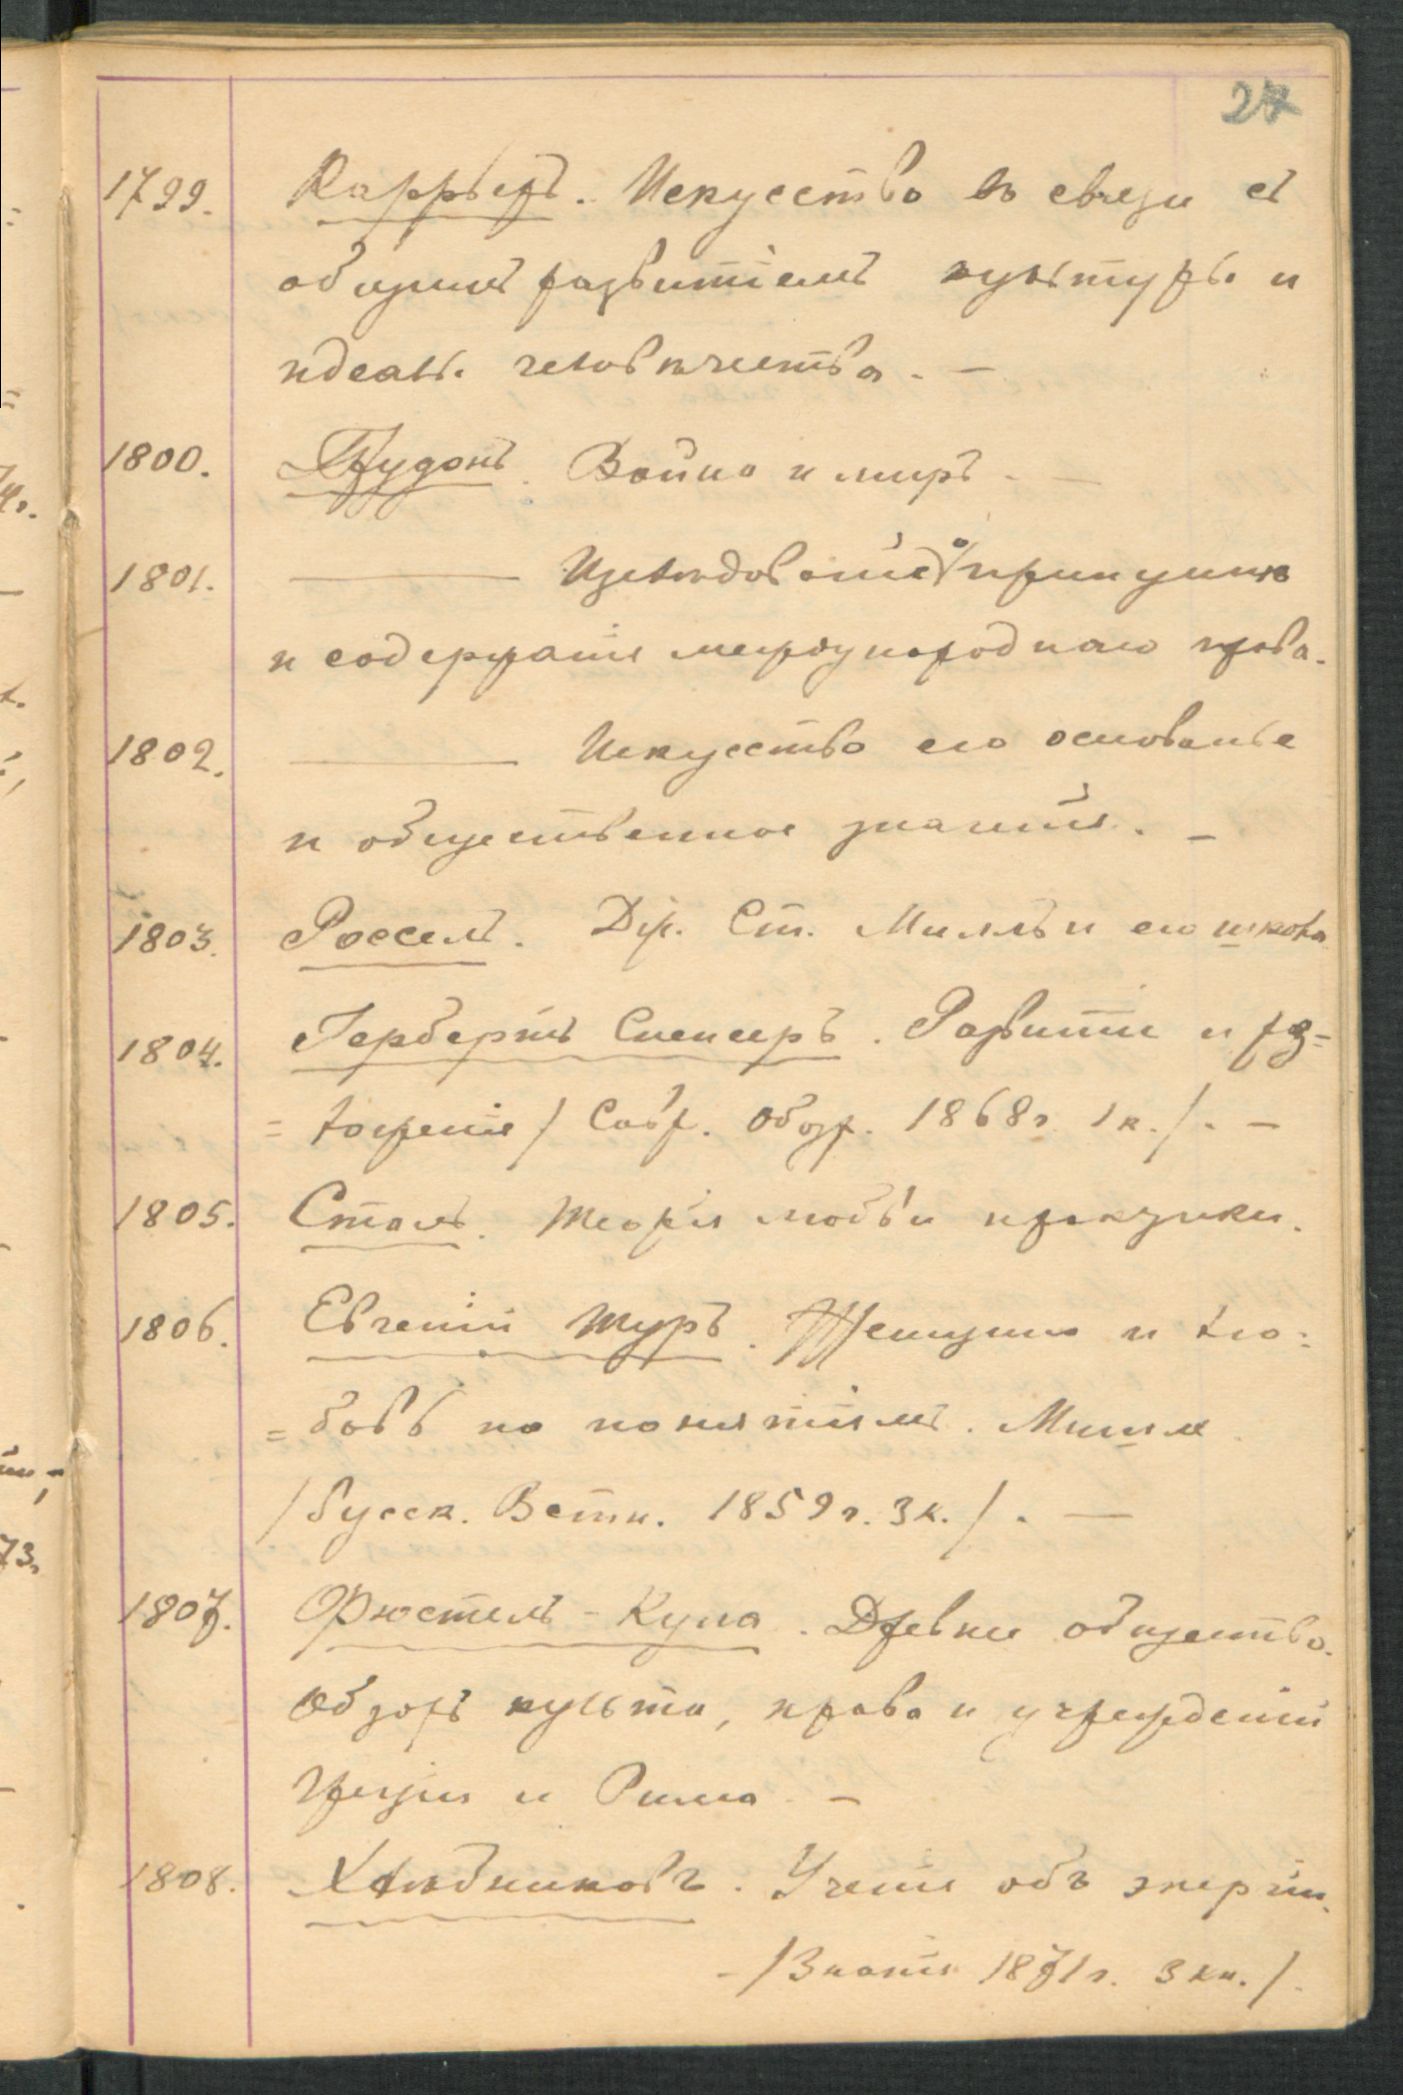 27
1799. Каррьеръ. Искусство въ связи съ
общимъ развитіемъ культуры и
идеалы человѣчества. —
1800. Прудонъ. Война и миръ. —
1801. — Изслѣдованіе о принципѣ
и содержаніи международнаго права.
1802. — Искусство его основанье
и общественное значеніе. —
1803. Россель. Дж. Ст. Милль и его школа
1804. Гербертъ Спенсеръ. Развитіе и раз=
=ложеніе / Совр. Обозр. 1868 г. 1 к. /. —
1805. Сталь. Теорія любви
1806. Евгеній Туръ. Женщина и лю=
=бовь по понятіямъ. Мишле
/ Русск. Вѣстн. 1859 г. 3 к. /. —
1807. Фюстель - Куланжа. Древнее общество.
Обзоръ культа, права и учрежденій
Греціи и Рима. —
1808. Хлѣбниковъ. Ученіе объ энергіи.
- / Знаніе 1871 г. 3 кн. /.